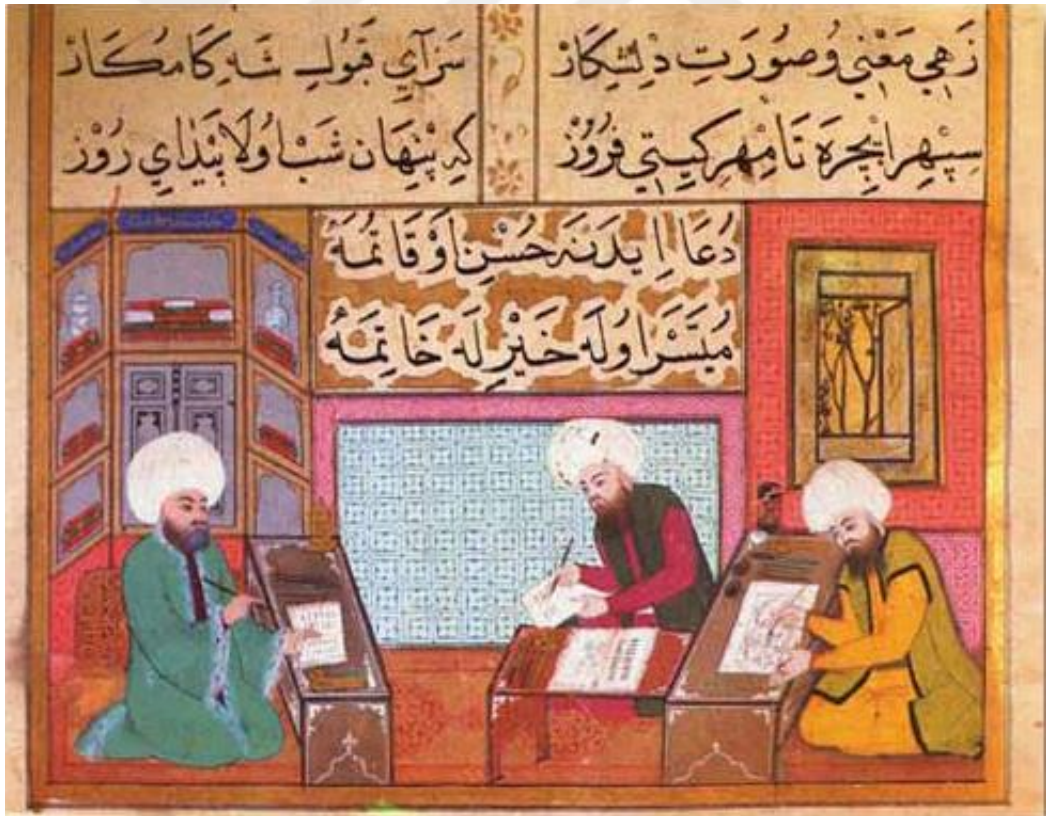 زَهِي مَعْنِي وُ صُورَتِ دِلْشِكَارْ
سَزَايِ قَبُولِ شَهِ كَامكَارْ
سِپِهْر اِيچِرَه تَا مِهْرِ كِيتِي فُرُوزْ
كِه پِنْهَان شَبْ اُولَا پَيْدَايِ رُوزْ
دُعَا اِيدَنَه حُسْنِ اَوْقَاتُمَهْ
مُيَسَّرْ اوُلَه خَيْرِلَه خَاتِمَهْ